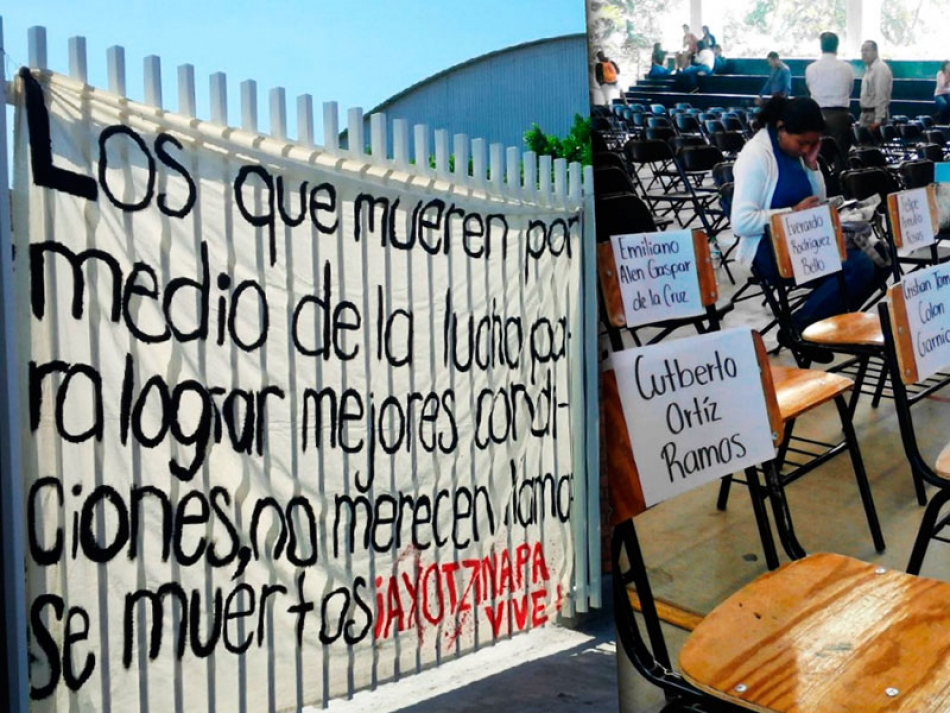 Los que mueren por
medio de la lucha pa-
ra lograr mejores condi-
ciones, no merecen llama
se muertos ¡AYOTZINAPA
VIVE!
Emiliano
Alen Gaspar
de la Cruz
Everardo
Rodríguez
Bello
Felipe
Arnulfo
Rosas
Cristian Tom
Colon
Garnic
Cutberto
Ortíz
Ramos